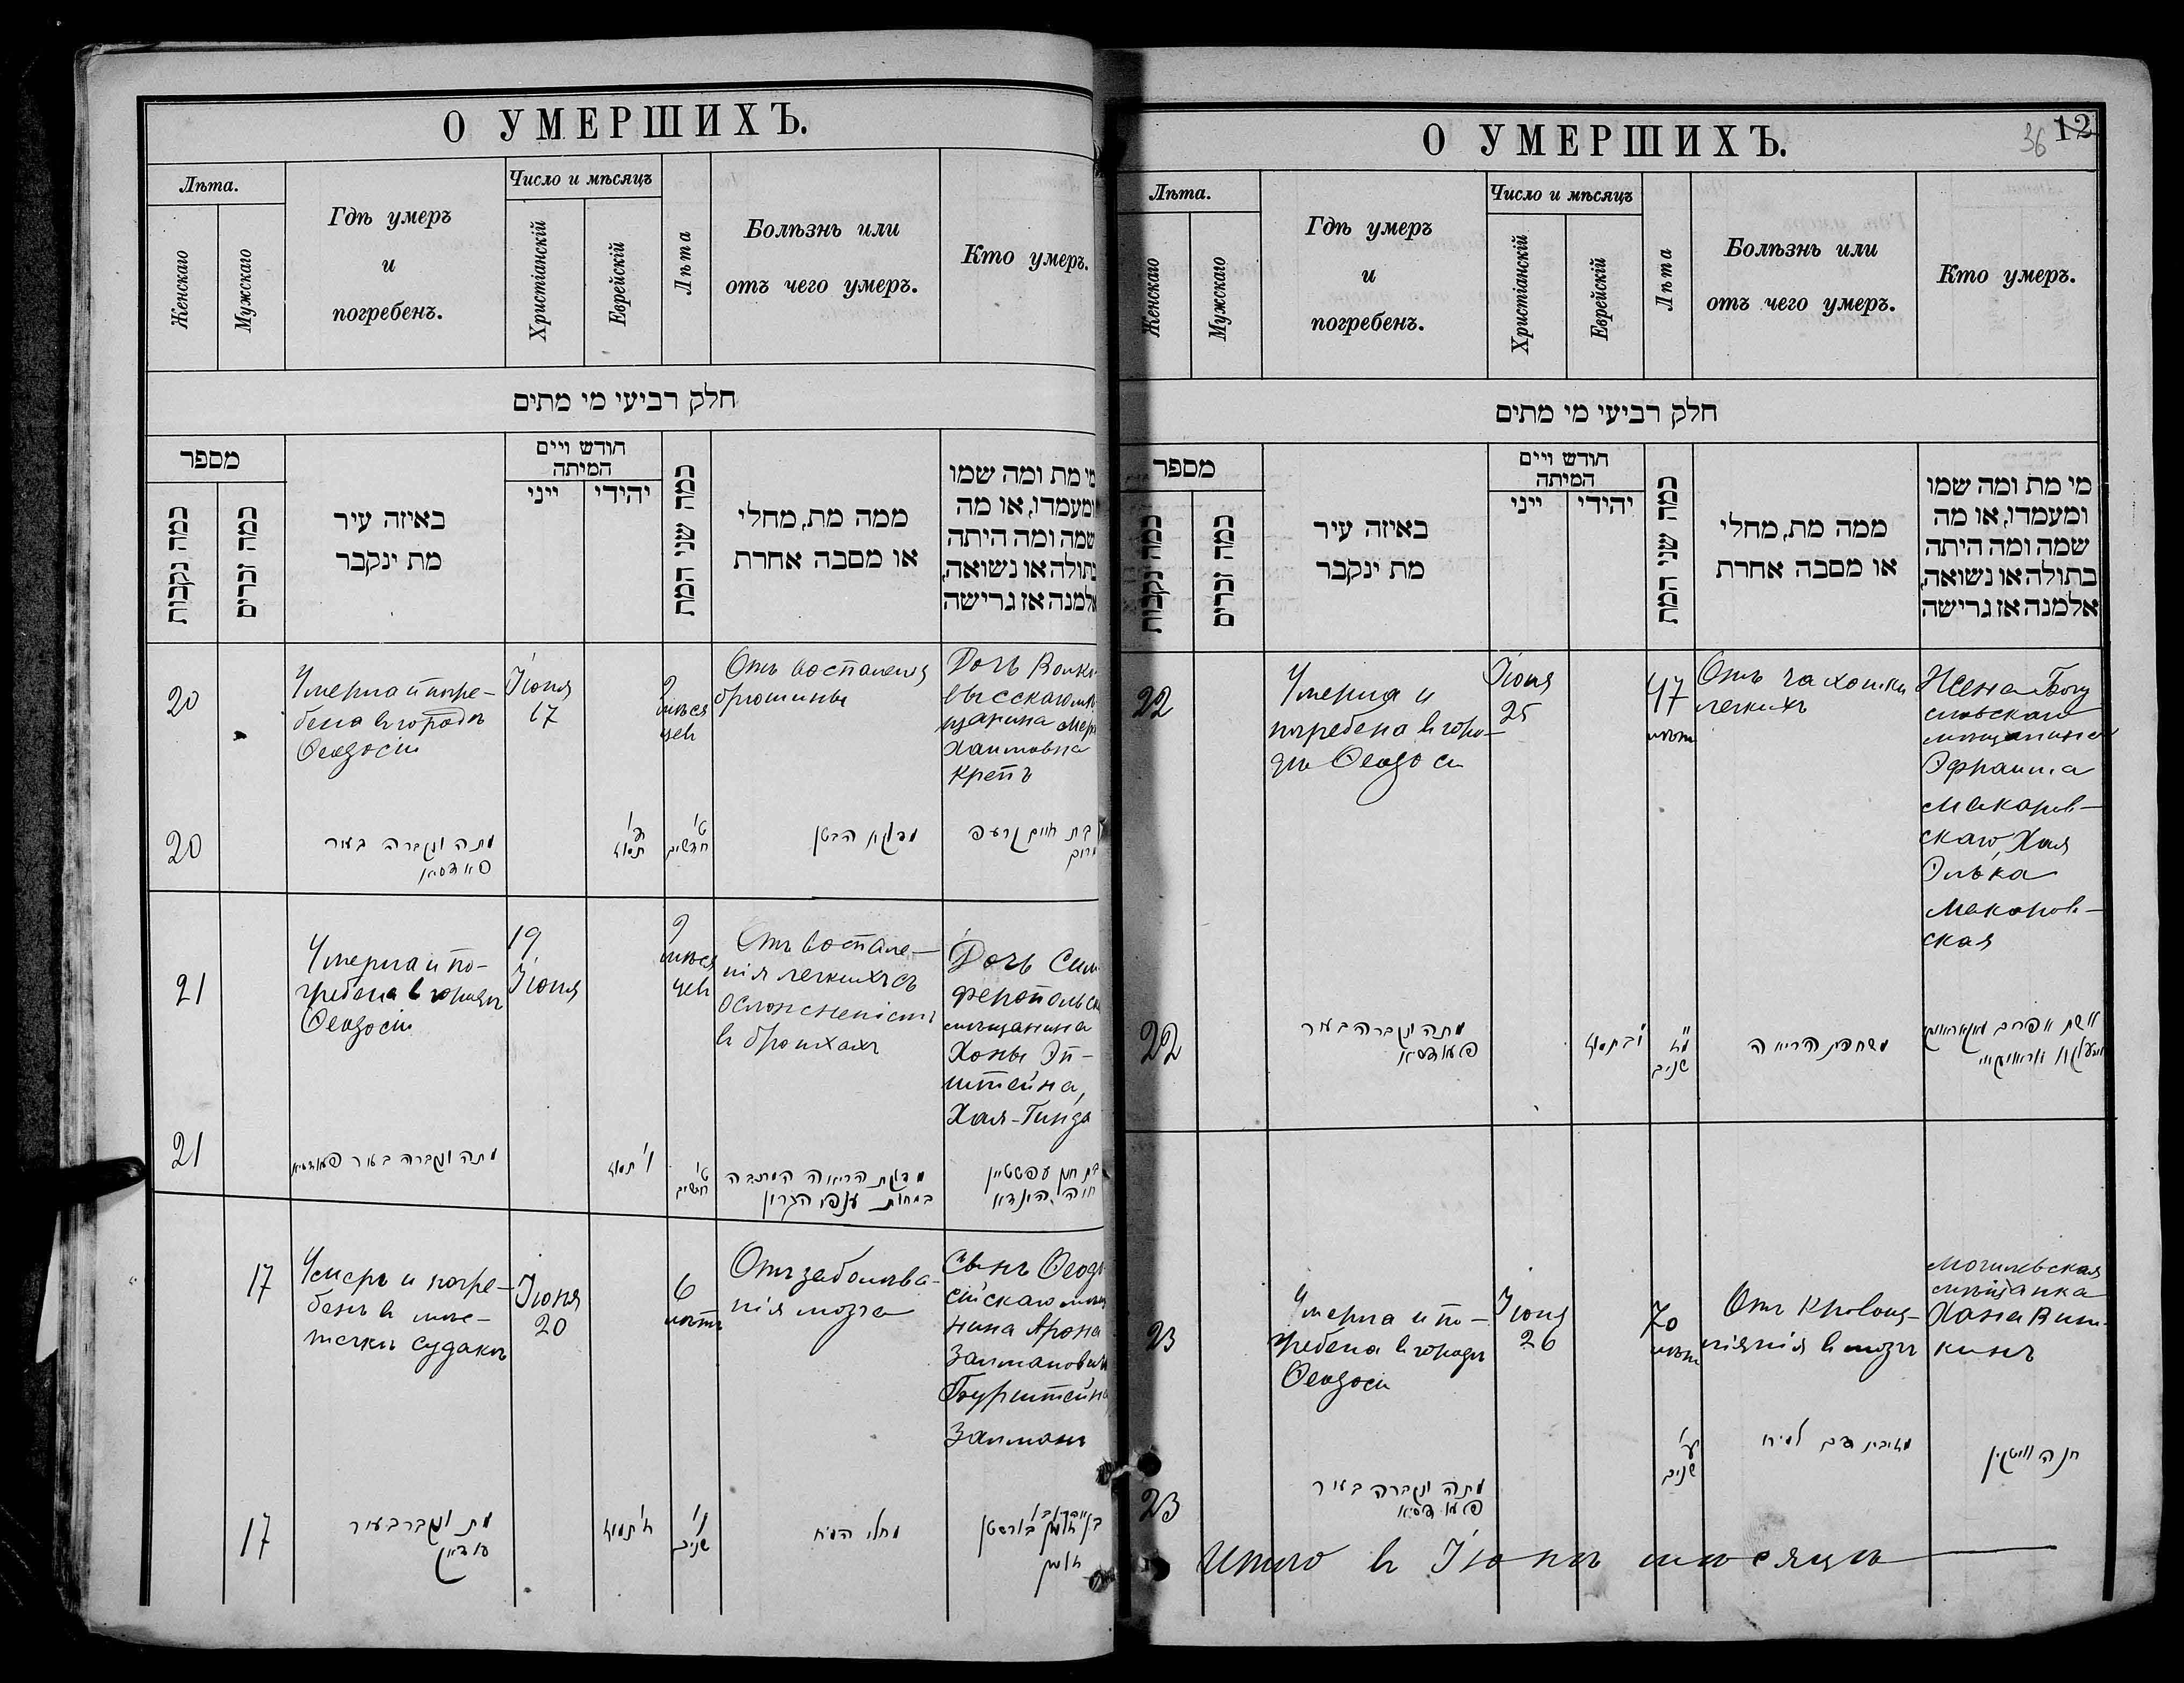 О УМЕРШИХЪ.
Лѣта.
Женскаго
Мужскаго
Гдѣ умеръ
и
погребенъ.
Число и мѣсяцъ
Христіанскій
Еврейскій
Лѣта
Болѣзнь или
отъ чего умеръ.
Кто умеръ.
חלק רביעי מי מתים
מספר
כמה נקבות
כמה זכרים
באיזה עיר
מת ינקבר
חודש ויים
המיתה
ייני
יהידי
כמה שני המת
ממה מת, מחלי
או מסבה אחרת
מי מת ומה שמו
ומעמדו, או מה
שמה ומה היתה
בתולה או נשואה,
אלמנה אז גרישה
20
Умерла и погре-
бена в городѣ
Ѳеодосіи
Іюня
17
9
мѣся
цев
Отъ воспаленія
брюшины
Дочь
щанина
Хаимовна
Крепъ
20
מתה ונקברה בעיר
תמוז
ט'
חדשים
הבטן
בת חיים קרעפ
21
Умерла и по-
гребена в городѣ
Ѳеодосіи
19
Іюня
9
мѣся
цев
Отъ воспале-
нія легкихъ съ
осложненіемъ
в бронхахъ
Дочь Сим
феропольск
мѣщанина
Хоны Эп-
штейна,
Хая-Гинда
21
מתה ונקברה בעיר
ו' תמוז
ט'
חדשים
הריאה
בת חנן עפשטיין
חיה הינדא
17
Умеръ и погре-
бенъ в мѣс-
течкѣ Судакъ
Іюня
20
6
лѣтъ
Отъ заболѣва-
нія мозга
Сынъ Ѳеодо
сійскаго мѣщ
нина Арона
Залмановича
Бурштейна
Залманъ
17
מת ונקבר בעיר
סודאק
תמוז
ו'
שנים
מחלי המוח
זלמן
О УМЕРШИХЪ.
36
12
Лѣта.
Женскаго
Мужскаго
Гдѣ умеръ
и
погребенъ.
Число и мѣсяцъ
Христіанскій
Еврейскій
Лѣта
Болѣзнь или
отъ чего умеръ.
Кто умеръ.
חלק רביעי מי מתים
מספר
כמה נקבות
כמה זכרים
באיזה עיר
מת ינקבר
חודש ויים
המיתה
ייני
יהידי
כמה שני המת
ממה מת, מחלי
או מסבה אחרת
מי מת ומה שמו
ומעמדו, או מה
שמה ומה היתה
בתולה או נשואה,
אלמנה אז גרישה
22
Умерла и
погребена в горо-
дѣ Ѳеодоси
Іюня
25
47
лѣтъ
Отъ чахотки
легкихъ
Жена Богу
славскаго
мѣщанина
Эфраима
Макаров-
скаго, Хая
Элька
Макаров-
ская
22
מתה ונקברה בעיר
מז
שנים
משחפת הריאה
אשת אפרים
23
Умерла и по-
гребена в городѣ
Ѳеодоси
Іюня
26
70
лѣтъ
Отъ кровоиз-
ліянія в мозгъ
Могилевская
мѣщанка
Хана Вит-
кинъ
23
מתה ונקברה בעיר
ע'
שנים
חנה וויטקין
Итого в Іюнѣ мѣсяцѣ